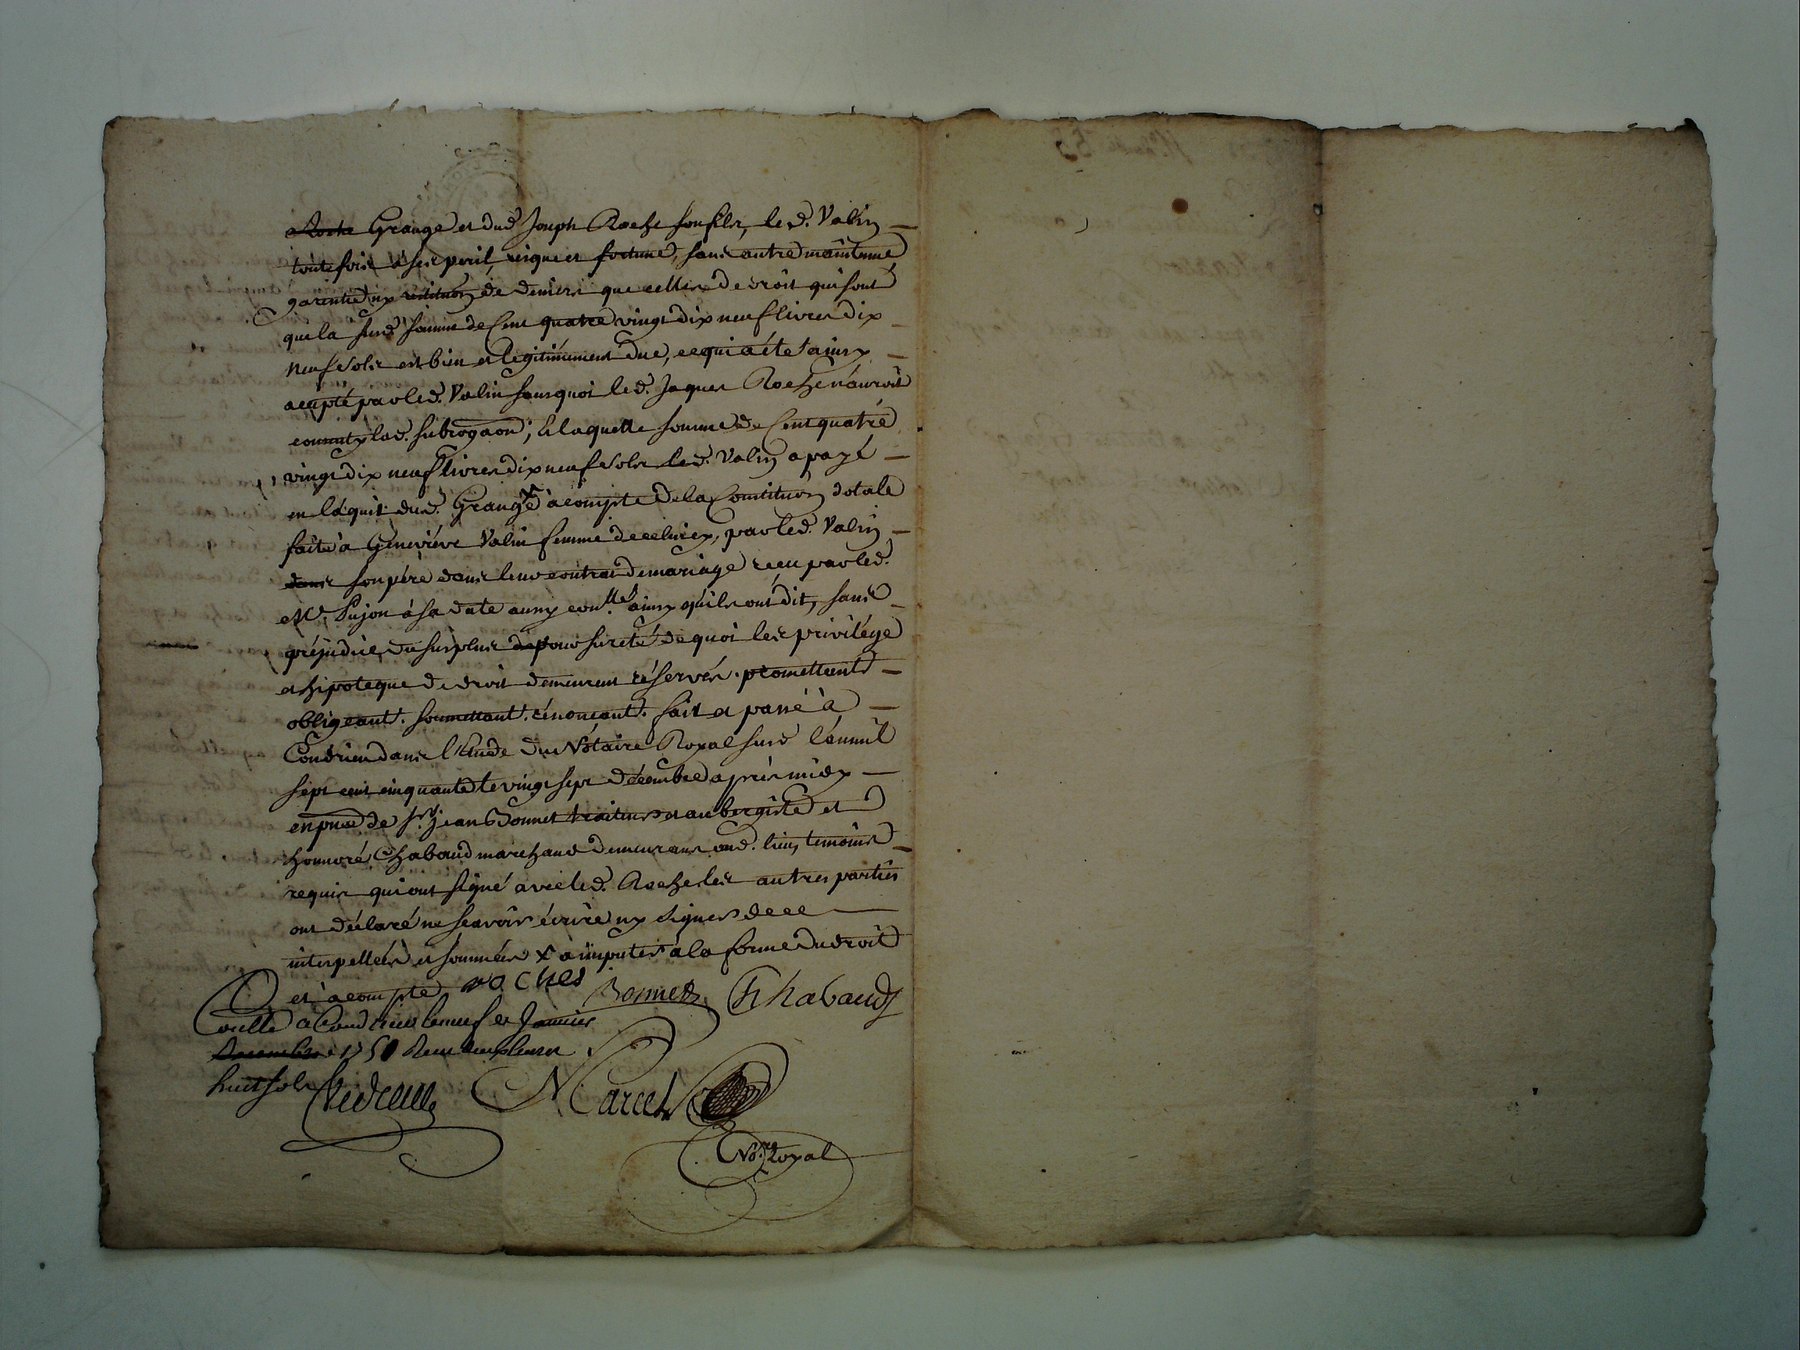 Grange et dud. Joseph Roche son fils, led. Valin
toutefois à ses peril, risque et fortune, sans autre maintenue
garentie ny restituon de deniers que celles de droit qui sont
que la susd. somme de Cent quatre vingt dix neuf livres dix
neuf sols est bien et legitimement due, ce qui a été ainsy
accepté par led. Valin sans quoi led. Jaques Roche n'auroit
consenty lad. subrogaon; la laquelle somme de Cent quatre
vingt dix neuf livres dix neuf sols led. Valin a payé
en l'aquit dud. Grange x à compte de la Constituon dotale
faite à Geneviève Valin femme de celuicy, par led. Valin
son père dans leur contrat de mariage receu par led.
Me. Pujon à sa date aux contlles ainsy qu'ils ont dit, sans
préjudice du surplus pour sureté de quoi les privilége
et hipoteque de droit demeurent réservés. promettant
obligeant. soumettant. rénonçant. fait et passé à
Condrieu dans l'Etude du Notaire Royal susd. l'an mil
sept cent cinquante le vingt sept décembre après midy
en pnce de sr. Jean Bonnet traiteur et aubergiste et
honnoré Chabaud marchand demeurans aud. lieu, temoins
requis qui ont signé avec led. Roche les autres parties
ont déclaré ne scavoir écrire ny signer de ce
interpellées et sommées x à imputer à la forme du droit
et à compte, roches Bonnet Chabaud
Conllé a Condrieu le neuf Janvier
1751 Recu
huit sols
Marcel
No.re Royal